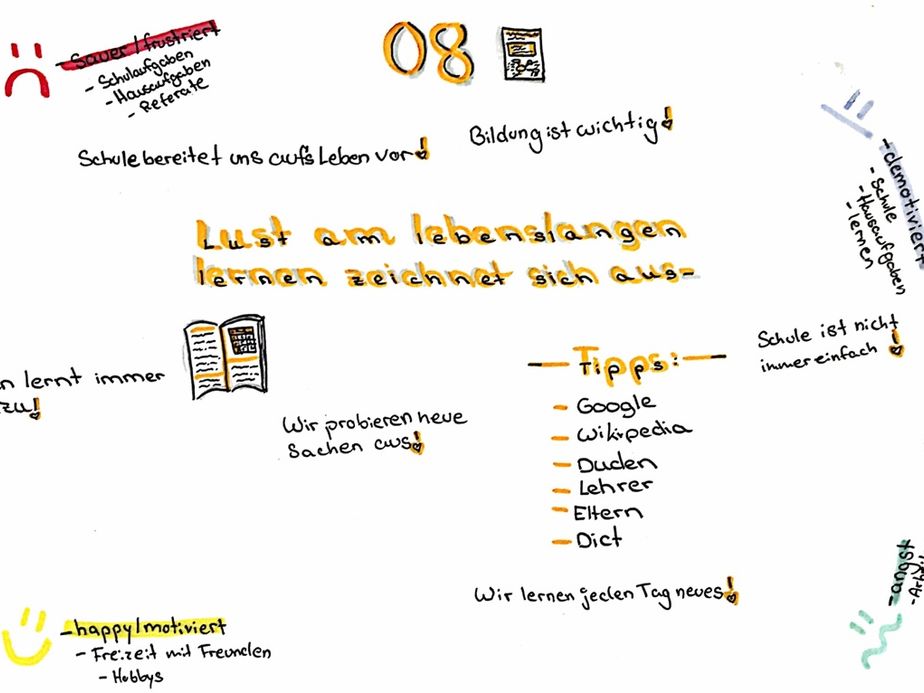 08
- sauer/frustriert
- Schulaufgaben
- Hausaufgaben
- Referate
Schule bereitet uns aufs Leben vor!
Bildung ist wichtig!
- demotiviert
- Schule
- Hausaufgaben
- lernen
Lust am lebenslangen
lernen zeichnet sich aus-
n lernt immer
zu!
Wir probieren neue
Sachen aus!
Schule ist nicht
immer einfach!
— Tipps: —
- Google
- Wikipedia
- Duden
- Lehrer
- Eltern
- Dict
Wir lernen jeden Tag neues!
- happy/motiviert
- Freizeit mit Freunden
- Hobbys
- angst